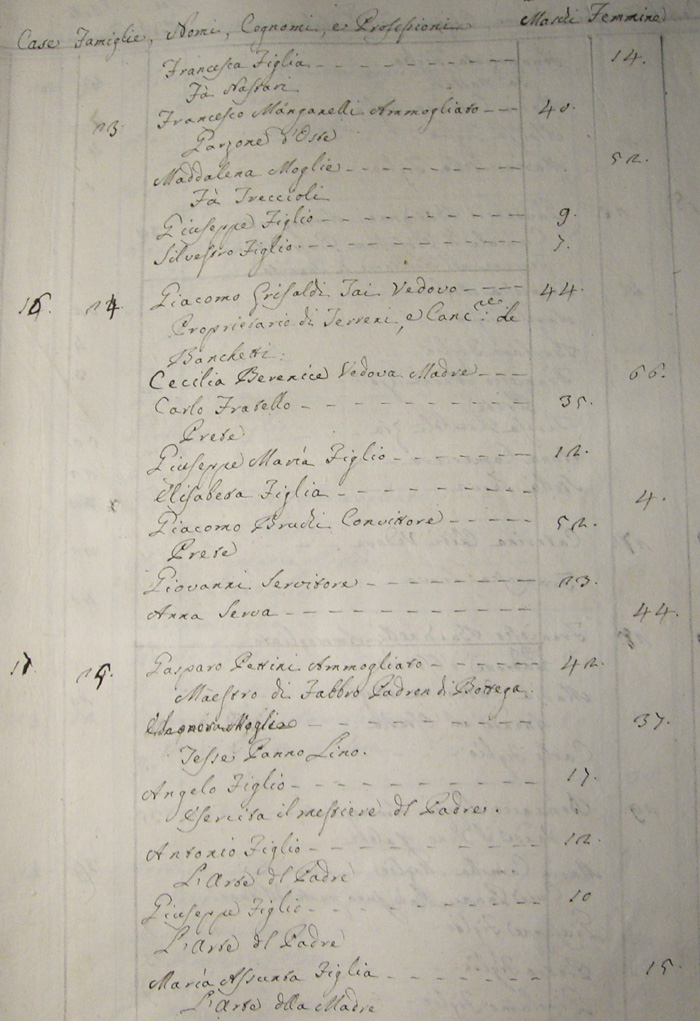 Case Famiglie, Nomi, Cognomi, e Professioni Maschi Femmine
Francesca Figlia 14.
Fà Nastari
23. Francesco Manganelli Ammogliato 40.
Garzone d'Oste
Maddalena Moglie 52.
Fà Treccioli
Giuseppe Figlio 9.
Silvestro Figlio 7.
16. 24. Giacomo Grisaldi Tai Vedovo 44.
Proprietario di Terreni, e Canc.re de
Banchetti.
Cecilia Berenice Vedova Madre 66.
Carlo Fratello 35.
Prete
Giuseppe Maria Figlio 12.
Elisabetta Figlia 4.
Giacomo Convittore 52.
Prete
Giovanni Servitore 23.
Anna Serva 44.
17. 25. Gasparo Pettini Ammogliato 42.
Maestro di Fabbro Padron di Bottega.
Eleonora Moglie 37.
Tesse Panno Lino.
Angelo Figlio 17.
Esercita il mestiere del Padre.
Antonio Figlio 12.
L'Arte del Padre
Giuseppe Figlio 10
L'Arte del Padre
Maria Assunta Figlia 15.
L'Arte della Madre